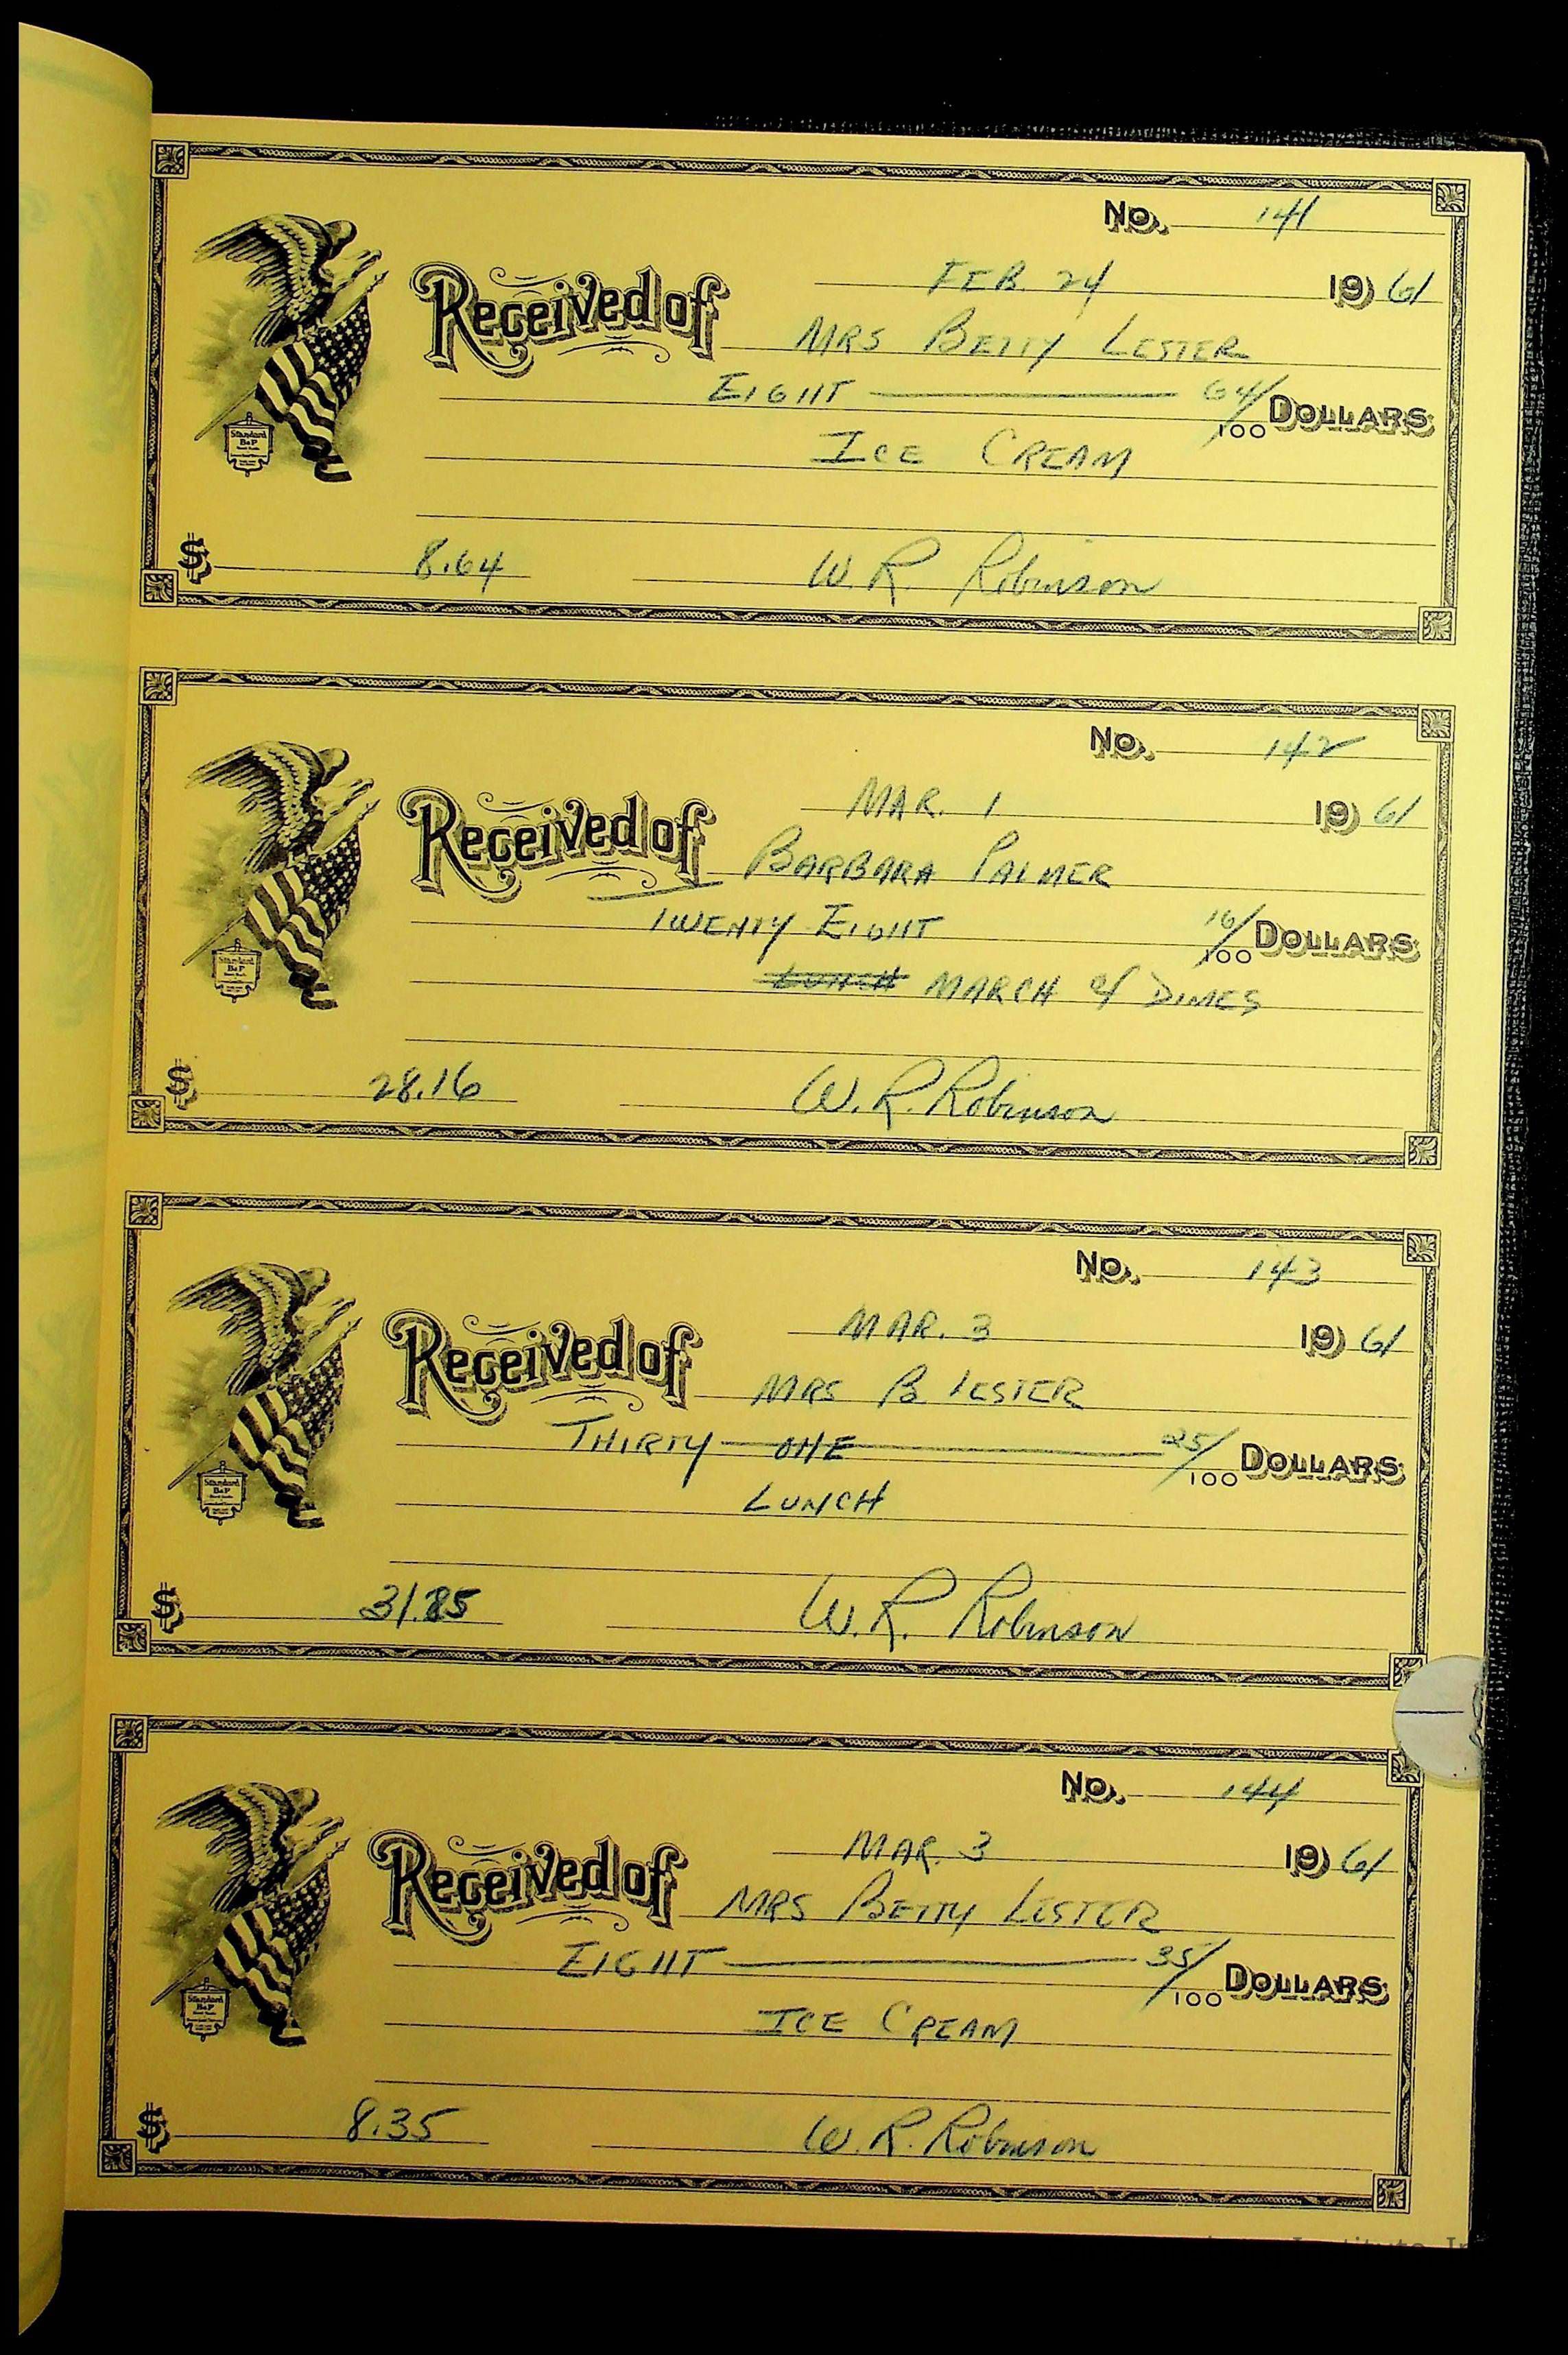 No. 141
FEB. 24 1961
Received of MRS BETTY LESTER
EIGHT 64/100 DOLLARS
ICE CREAM
Standard B&P
$ 8.64 W. R. Robinson
No. 142
MAR. 1 1961
Received of BARBARA PALMER
TWENTY EIGHT 16/100 DOLLARS
LUNCH MARCH of DIMES
Standard B&P
$ 28.16 W. R. Robinson
No. 143
MAR. 3 1961
Received of MRS B. LESTER
THIRTY ONE 25/100 DOLLARS
LUNCH
Standard B&P
$ W. R. Robinson
No. 144
MAR. 3 1961
Received of MRS BETTY LESTER
EIGHT 35/100 DOLLARS
ICE CREAM
Standard B&P
$ 8.35 W. R. Robinson